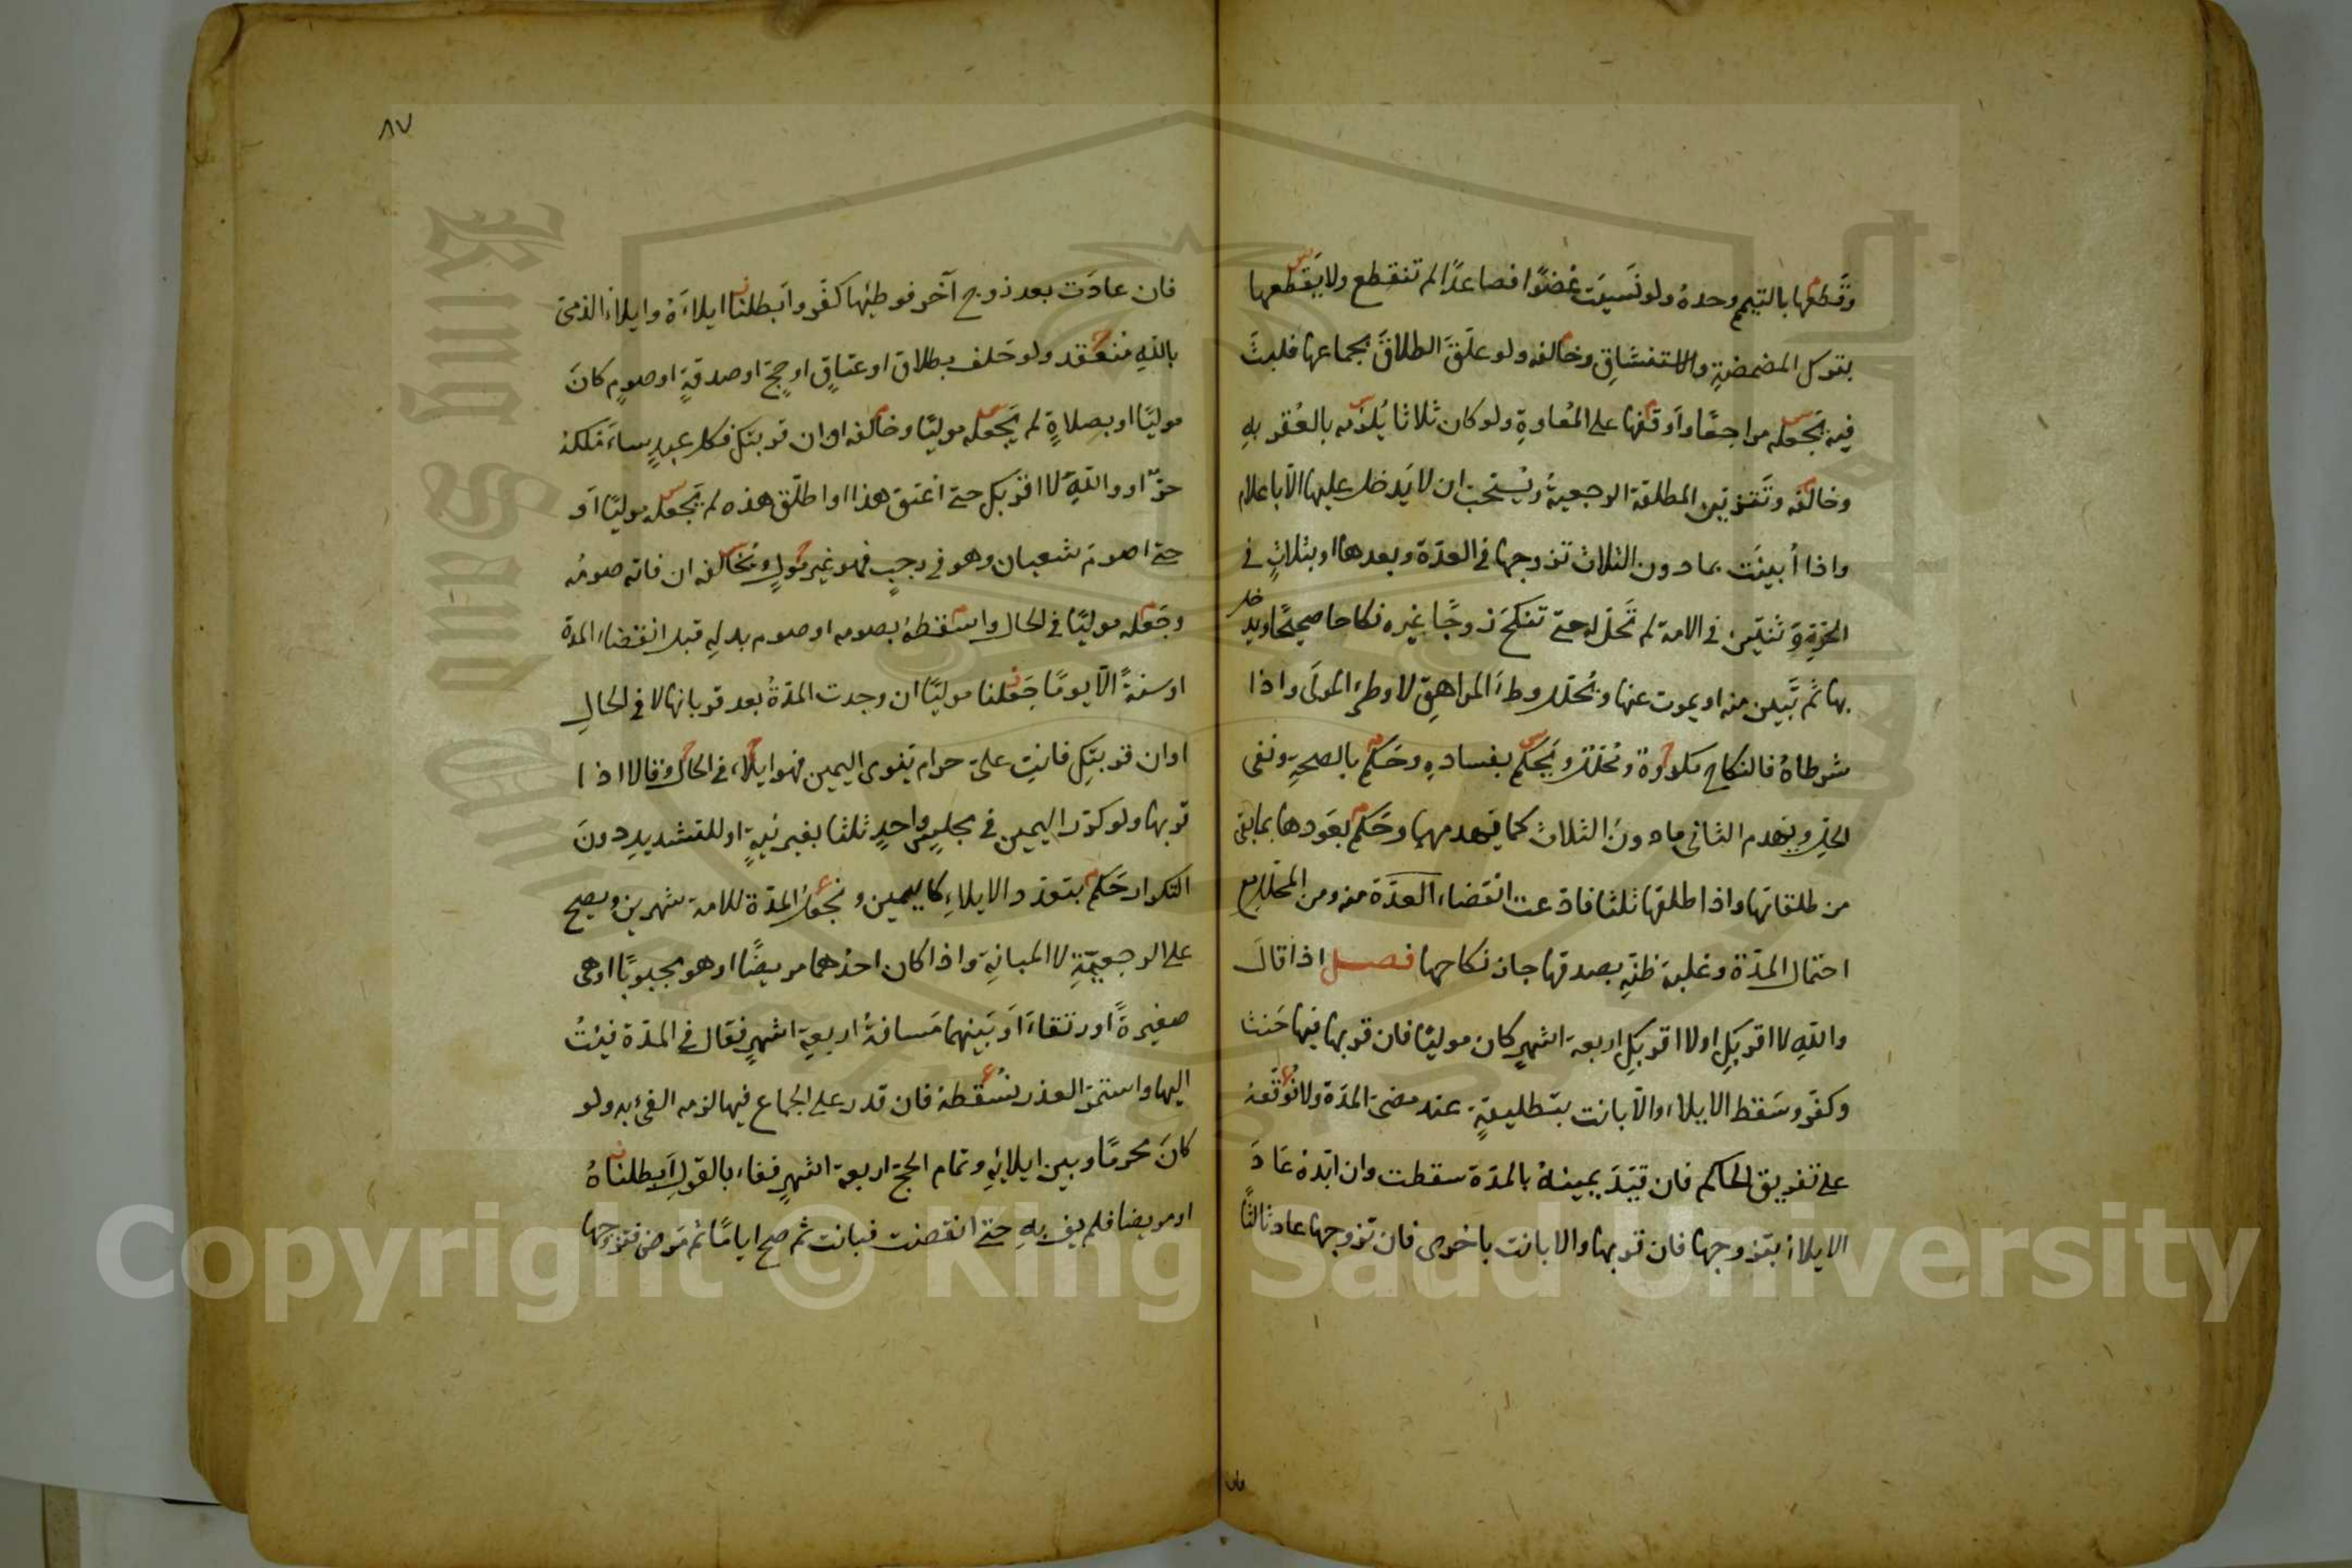 وقطعها بالتيمم وحده ولو نَسِيَت عُضوًا فصاعدًا لم تنقطع ولا يَقطعها
بترك المضمضةِ والاستنشاقِ وخالفه ولو علّقَ الطلاقَ بجماعها فلبثَ
فيه يَجعله مراجعًا وأوقفها على المُعاودةِ ولو كان ثلاثا يُلزمه بالعُقر بهِ
وخالفه وتَتزيّن المطلقة الرجعيةُ ويُستحب ان لا يَدخل عليها الّا باعلام
واذا أُبينَت بما دون الثلاث تزوجها في العدّة وبعدها او بثلاثٍ في
الحُرّةِ وَ ثنتين في الامة لم تَحل له حتى تنكحَ زوجًا غيره نكاحا صحيحًا ويدخل
بها ثم تَبين منه او يموت عنها ويُحلل وطءُ المراهقِ لا وطئ المولَى واذا
شرطاهُ فالنكاح مكروهة ويُحلل ويَحكم بفسادهِ وحَكم بالصحةِ ونفى
الحِل ويهدم الثاني ما دونَ الثلاث كما يَهدمها وحَكم بعَودها بما بقى
من طلقاتها واذا طلقها ثلثا فادعت انقضاء العدّة منه ومن المحلل مع
احتمال المدّة وغلبة ظنّهِ بصدقها جاز نكاحها فصل اذا قالَ
واللهِ لا اقربكِ او لا اقربكِ اربعة اشهرٍ كان موليًا فان قربها فيها حَنث
وكفّر وسَقط الايلاء والّا بانت بتطليقةٍ عند مضىّ المدّة ولا نُوقفه
على تفريق الحاكم فان قيّدَ يمينهُ بالمدّة سقطت وان ابّدهُ عَادَ
الايلاءُ بتزوجها فان قربها والا بانت باخرى فان تزوجها عاد ثالثًا
فان
٨٧
فان عادَت بعد زوج آخر فوطئها كفّر وابَطلنا ايلاءَهُ وايلاءُ الذمىّ
باللهِ منعقد ولو حَلف بطلاق او عتاقٍ او حجّ او صدقةٍ او صومٍ كانَ
موليًا او بصلاةٍ لم يَجعله موليًا وخالفه او ان قربتكِ فكل عبدٍ ساَملكهُ
حرّ او واللهِ لا اقربكِ حتى اعتق هذا او اطلّق هذه لم يَجعله موليًا اَو
حتى اصومَ شعبان وهو في رجبٍ فهو غير مُولٍ ويُخالفه ان فاته صومُه
وجَعله موليًا في الحال واسَقطهُ بصومه او صوم بدلهِ قبل انقضاء المدة
او سنةً الّا يومًا جَعلنا موليًا ان وجدت المدّةُ بعد قربانها لا في الحالِ
او ان قربتكِ فانتِ علىّ حرام ينوى اليمين فهو ايلاء في الحال وقالا اذا
قربها ولو كرّر اليمين في مجلسٍ واحدٍ ثلثا بغير نيةٍ او للتشديدِ دونَ
التكرار حَكم بتعدد الايلاءِ كاليمين ونجعل المدّة للامة شهرين ويصح
على الرجعيّةِ لا المبانةِ واذا كان احدُهما مريضًا او هو مجبوبًا او هى
صغيرةً او رتقاءَ اَو بَينهما مَسافةُ اربعةِ اشهرٍ فقال في المدّة فئتُ
اليها واستمرّ العذر نُسقطه فان قدر على الجماع فيها لزمه الفئ به ولو
كانَ محرمًا وبين ايلائهِ وتمام الحج اربعة اشهرٍ ففاء بالقول ابَطلناهُ
او مريضا فلم يفِ بهِ حتى انقضت فبانت ثم صح ايامًا ثم مَرض فتزوجها
Copyright © King Saud University